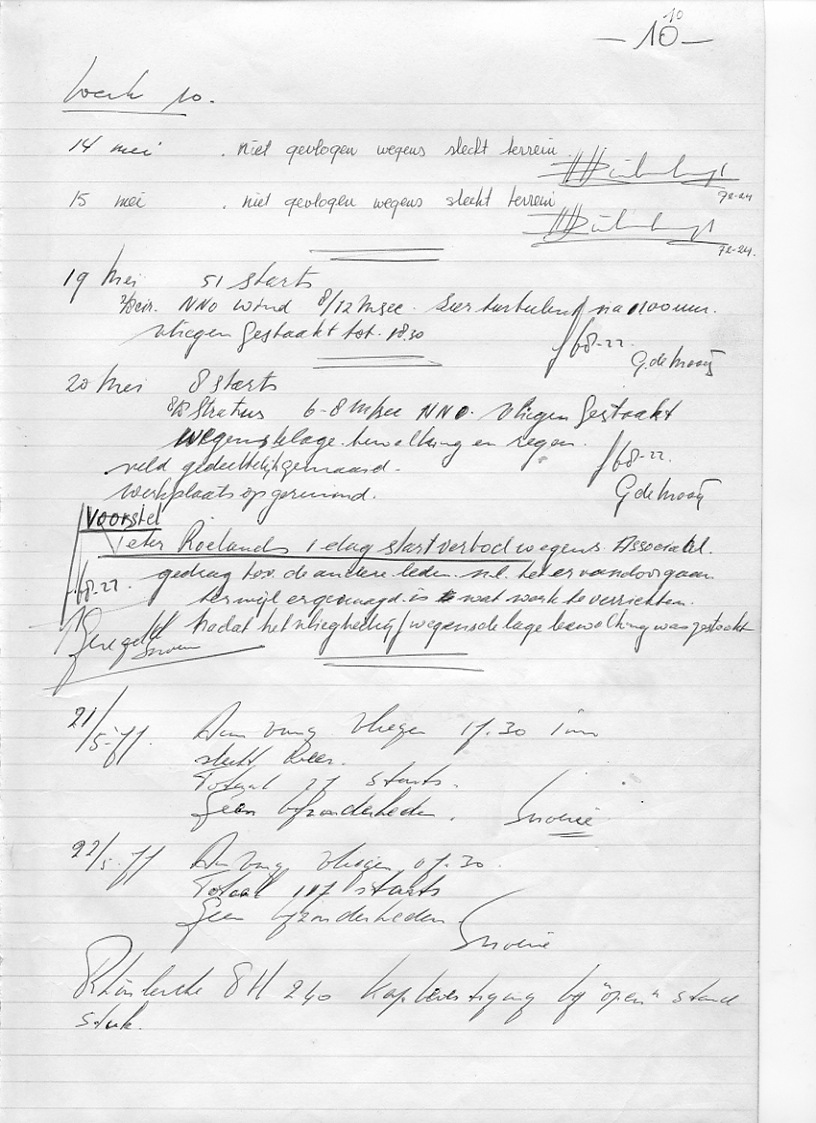 10
- 10 -
week 10.
14 mei . niet gevlogen wegens slecht terrein
72-24
15 mei . niet gevlogen wegens slecht terrein
72-24.
19 mei 51 starts
NNO wind 8/12 m/sec. zeer turbulent na 1100 uur.
vliegen gestaakt tot 18.30
68-22.
G. de Mooij
20 mei 8 starts
8/8 Stratus 6-8 m/sec NNO. vliegen gestaakt
wegens lage bewolking en regen.
veld gedeeltelijk gemaaid.
68-22.
werkplaats opgeruimd.
G de Mooij
Voorstel
Peter Roelands 1 dag startverbod wegens Associaal.
gedrag tov. de andere leden. nl. het er vandoor gaan
68-22.
terwijl er gevraagd is wat werk te verrichten.
nadat het vliegbedrijf wegens de lage bewolking was gestaakt
Geregeld
21/5-77. Aanvang vliegen 17.30 i.v.m
slecht weer.
Totaal 27 starts.
Geen bijzonderheden.
22/5-77 Aanvang vliegen 07.30.
Totaal 107 starts
Geen bijzonderheden.
Rhönlerche PH 240 kapbevestiging bij "open" stand
stuk.